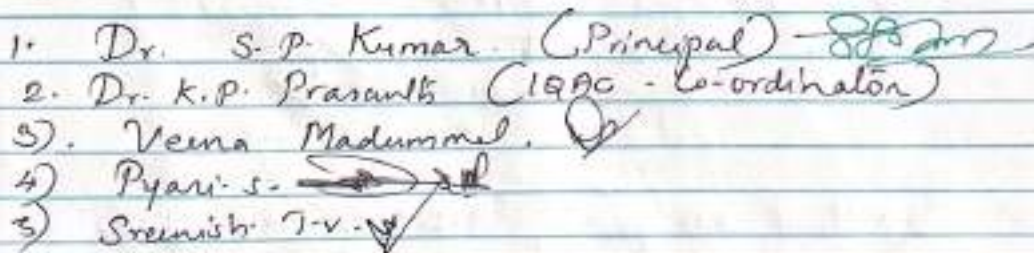 1. Dr. S. P. Kumar. (Principal)
2. Dr. K.P. Prasanth (IQAC - Co-ordinator)
3). Veena Madummel.
4) Pyari. S.
5) Sreenish. T.V.